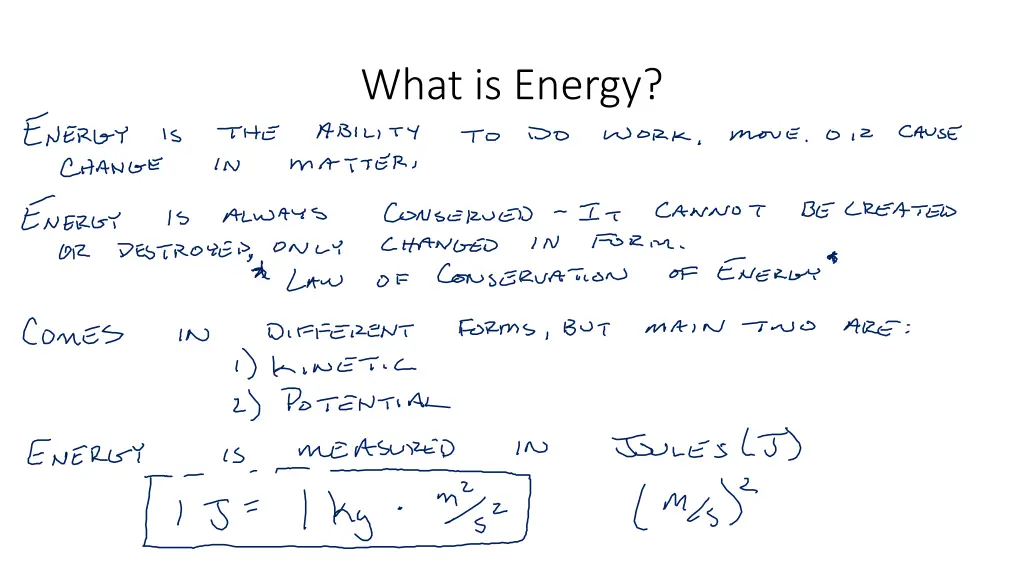 What is Energy?
ENERGY IS THE ABILITY TO DO WORK, MOVE. OR CAUSE
CHANGE IN MATTER.
ENERGY IS ALWAYS CONSERVED ~ IT CANNOT BE CREATED
OR DESTROYED, ONLY CHANGED IN FORM.
* LAW OF CONSERVATION OF ENERGY *
COMES IN DIFFERENT FORMS, BUT MAIN TWO ARE:
1) KINETIC
2) POTENTIAL
ENERGY IS MEASURED IN JOULES (J)
1 J = 1 kg · m²/s² (m/s)²